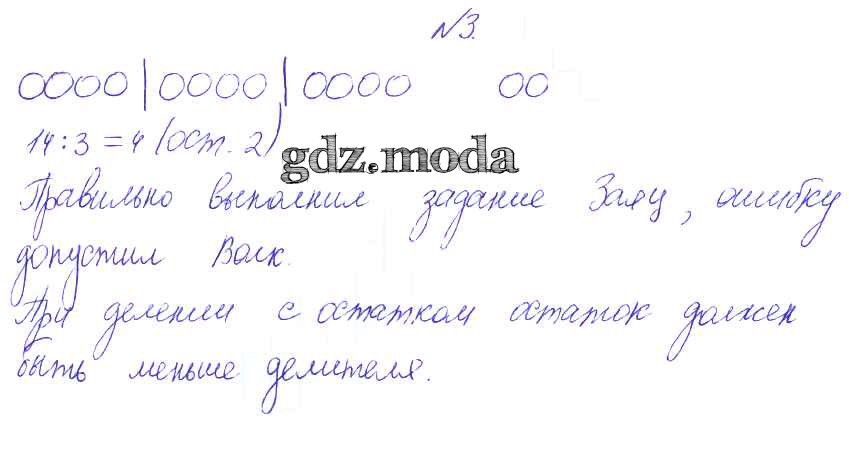 №3.
14:3=4 (ост. 2)
gdz.moda
Правильно выполнил задание Заяц, ошибку
допустил Волк.
При делении с остатком остаток должен
быть меньше делителя.